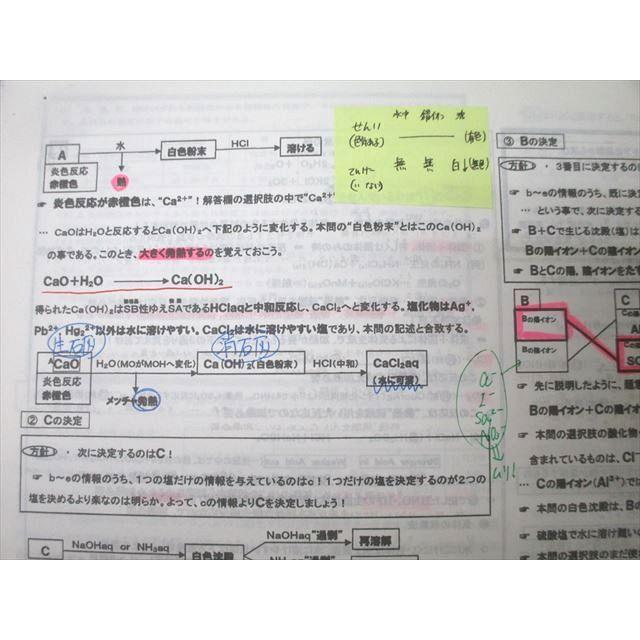 A
炎色反応
赤橙色
水
熱
白色粉末
HCl
溶ける
水中 錯イオン 水
せんい
(色ある)
(有色)
無 無 白↓(無色)
☞ 炎色反応が赤橙色は、“Ca²⁺”！解答欄の選択肢の中で“Ca²⁺
… CaOはH₂Oと反応するとCa(OH)₂へ下記のように変化する。本問の“白色粉末”とはこのCa(OH)₂
の事である。このとき、大きく発熱するのを覚えておこう。
CaO+H₂O → Ca(OH)₂
得られたCa(OH)₂はSB性ゆえSAであるHClaqと中和反応し、CaCl₂へと変化する。塩化物はAg⁺,
Pb²⁺, Hg₂²⁺以外は水に溶けやすい。CaCl₂は水に溶けやすい塩であり、本問の記述と合致する。
生石灰
消石灰
ᴬCaO
炎色反応
赤橙色
H₂O(MがMOHへ変化)
メッチャ発熱
Ca(OH)₂(白色粉末)
HCl(中和)
CaCl₂aq
(水に可溶)
② Cの決定
方針 ・ 次に決定するのはC！
☞ b～eの情報のうち、1つの塩だけの情報を与えているのはc！1つだけの塩を決定するのが2つの
塩を決めるより楽なのは明らか。よって、cの情報よりCを決定しましょう！
C
NaOHaq or NH₃aq
白色沈殿
NaOHaq“過剰”
再溶解
NH₃aq“過剰”
I⁻
SO₄²⁻
③ Bの決定
方針 ・ 3番目に決定するの
☞ b～eの情報のうち、既に決
… という事で、次に決定する
☞ B+Cで生じる沈殿(塩)は
Bの陽イオン+Cの陽イオ
☞ BとCの陽、陰イオンをた
B
Bの陽イオン
Bの陰イオン
C
☞ 先に説明したように、題意
Bの陽イオン+Cの陰イオ
☞ 本問の選択肢の酸化物
含まれているものは、Cl⁻
… Cの陽イオン(Al³⁺)では
☞ 本問の白色沈殿は、Bの
☞ 硫酸塩で水に溶け難い
☞ 本問の選択肢のまだ使